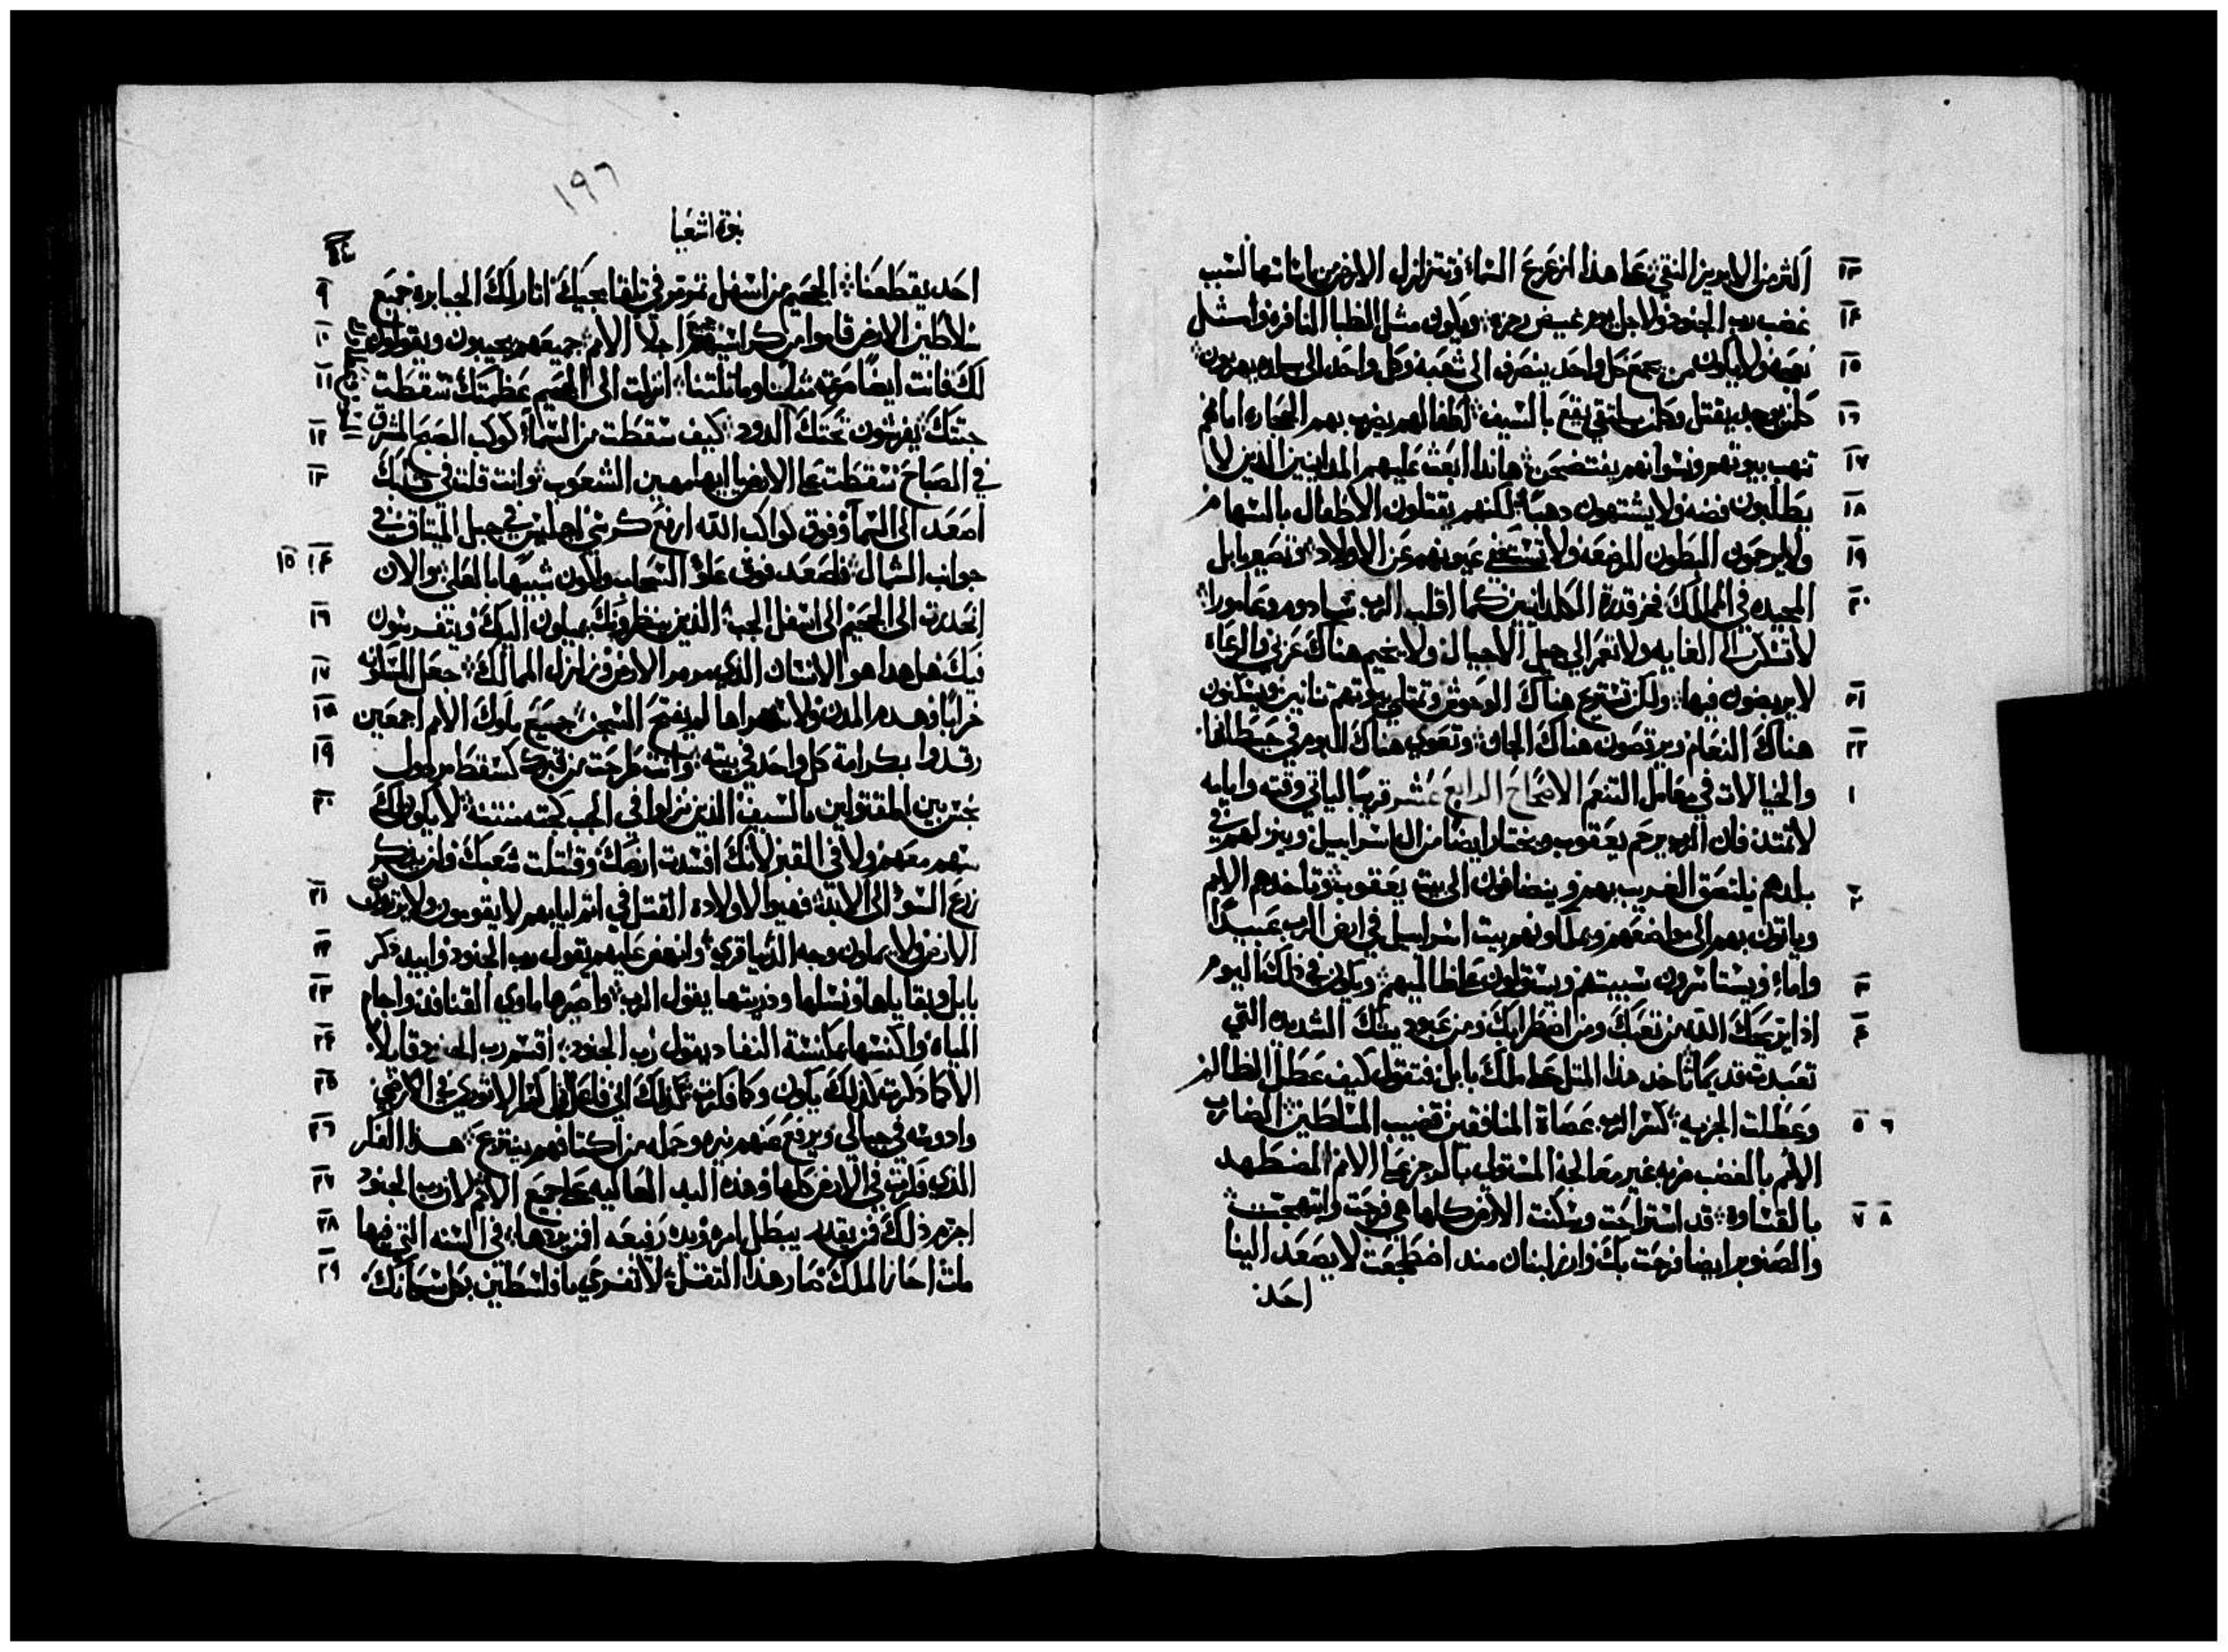 ١٣ اكثر من الابريز النقي علي هذا ازعزع السماء وتتزلزل الارض من مكانها لسبب
١٤ غضب رب الجنود ولاجل يوم غيض رجزه ويكون مثل الظبا النافره وامثل
١٥ نعجه ولا يكون من يجمع كل واحد ينصرف الي شعبه وكل واحد الي بلده يهربون
١٦ كلمن يوجد يقتل وكلمن يلتقي يقع بالسيف اطفالهم يضرب بهم الحجاره امامهم
١٧ تنهب بيوتهم ونسوانهم يفتضحن هاندا ابعث عليهم المدانيين الذين لا
١٨ يطلبون فضه ولا يشتهون دهبا لكنهم يقتلون الاطفال بالسهام
١٩ ولا يرحمون البطون المرضعه ولا تستحي عيونهم عن الاولاد وتصير بابل
٢٠ المجيده في الممالك فخر قدرة الكلدانيين كما اقلب الرب سادوم وعامورا
لا تسكن الي الغايه ولا تعمر الي جيل الاجيال ولا يخيم هناك عربي والرعاه
٢١ لا يربضون فيها ولكن تستريح هناك الوحوش وتمتلي بيوتهم تنانين ويسكنون
٢٢ هناك النعام ويرقصون هناك الجان وتعوي هناك البوم في حيطانها
١ والخيالات في هياكل التنعم الاصحاح الرابع عشر قريبا لياتي وقته وايامه
لا تمتد فان الرب يرحم يعقوب ويختار ايضا من ال اسراييل وينزلهم في
٢ بلدهم يلتصق الغريب بهم وينضافون الي بيت يعقوب وتاخدهم الامم
وياتون بهم الي مواضعهم ويملكونهم بيت اسراييل في ارض الرب عبيدا
٣ واماء ويستاسرون سبيتهم ويستولون علي ظالميهم ويكون في ذلك اليوم
٤ اذا يريحك الله من تعبك ومن اضطرابك ومن عبوديتك الشديده التي
تعبدت قديما تاخد هذا المثل علي ملك بابل فتقول كيف عطل الظالم
٥ ٦ وعطلت الجزيه كسر الرب عصاة المنافقين قضيب المتسلطين الضارب
الامم بالغضب ضربه غير معالجه المستولي بالرجز علي الامم المضطهد
٧ ٨ بالقساوه قد استراحت وسكنت الارض كلها هي فرحت وابتهجت
والصنوبر ايضا فرحت بك وارز لبنان منذ اضطجعت لا يصعد الينا
احد
١٩٦
نبوة اشعيا
٩ احد يقطعنا الجحيم من اسفل تمرمر في تلقا مجيك اثار لك الجبابره جميع
١٠ سلاطين الارض قاموا من كراسيهم جميع اجلا الامم جميعهم يجيبون ويقولون
١١ لك فانت ايضا جرحت مثلنا وماثلتنا انزلت الي الجحيم عظمتك سقطت
١٢ جثتك يفرشون تحتك الدود كيف سقطت من السماء كوكب الصبح المشرق
١٣ في الصباح سقطت علي الارض يا ايها مهين الشعوب وانت قلت في قلبك
اصعد الي السماء وفوق كواكب الله ارفع كرسي اجلس في جبل الميثاق في
١٤ ١٥ جوانب الشمال فاصعد فوق علو السحاب واكون شبيها بالعلي والان
١٦ انحدرت الي الجحيم الي اسفل الجب الذين ينظرونك يميلون اليك ويتفرسون
١٧ فيك هل هذا هو الانسان الذي مرمر الارض وزلزل الممالك جعل المسكونه
١٨ خرابا وهدم المدن ولاسراها لم يفتح السجن جميع ملوك الامم اجمعين
١٩ رقدوا بكرامة كل واحد في بيته وانت طرحت من قبرك كسقط مردول
٢٠ نجس بين المقتولين بالسيف الذين نزلوا في الجب كجثه منتنه لا يكون لك
سهم معهم ولا في القبر لانك افسدت ارضك وقتلت شعبك فلن يذكر
٢١ زرع السوء الي الابد فهيوا لاولاده القتل في اثم ابايهم لا يقومون ولا يرثون
٢٢ الارض ولا يملون وجه الدنيا قري وانهض عليهم يقول رب الجنود وابيد ذكر
٢٣ بابل وبقاياها ونسلها وذريتها يقول الرب واصيرها ماوي القنافد واجام
٢٤ المياه واكنسها بمكنسة النفاد يقول رب الجنود اقسم رب الجنود قايلا
٢٥ الا كما ذكرت كذلك يكون وكما فكرت كذلك اني فاعل في كسر الاثوري في ارضي
٢٦ وادوسه في جبالي ويرفع عنهم نيره وحمله من اكتافهم ينتزع هذا الفكر
٢٧ الذي فكرت في الارض كلها وهذه اليد العاليه علي جميع الامم لان رب الجنود
٢٨ اجزم ذلك فمن يقدر يبطل امره ويده رفيعه افمن يردها في السنه التي فيها
٢٩ مات احاز الملك صار هذا الثقل لا تفرحي يا فلسطين بكل سكانك